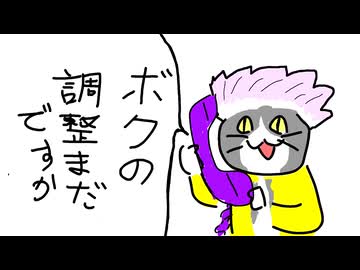 ボクの
調整まだ
ですか